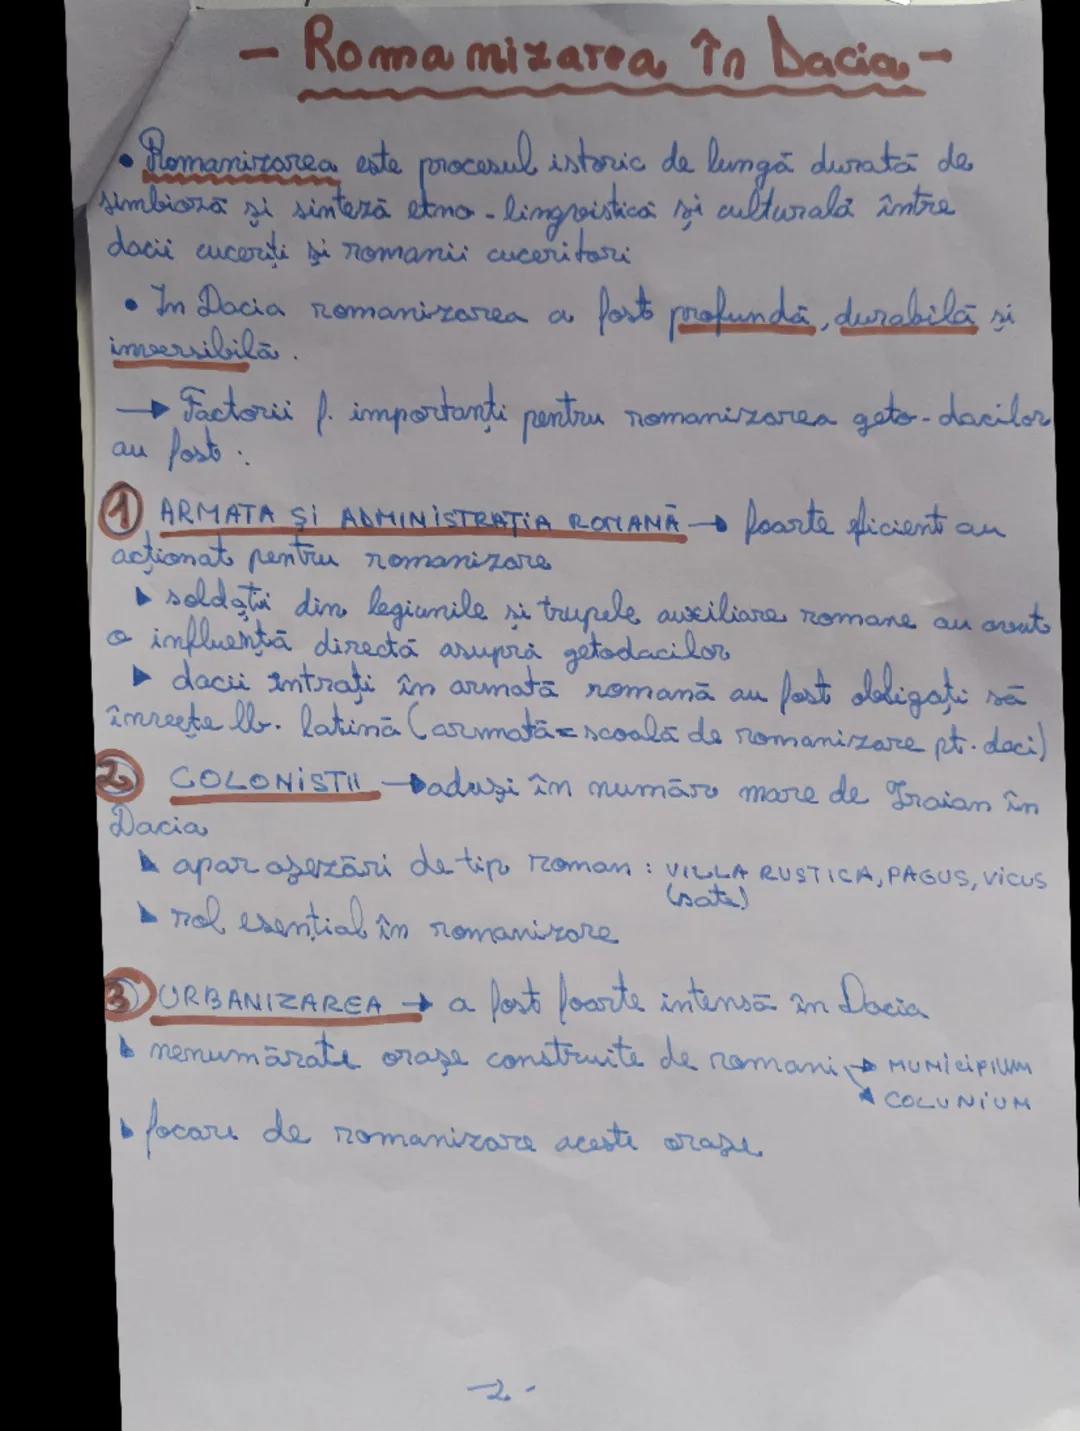 - Romanizarea în Dacia -
• Romanizarea este procesul istoric de lungă durată de
simbioză și sinteză etno-lingvistică și culturală între
dacii cuceriți și romanii cuceritori
• In Dacia romanizarea a fost profundă, durabilă și
ireversibilă.
→ Factorii f. importanți pentru romanizarea geto-dacilor
au fost:
① ARMATA ȘI ADMINISTRAȚIA ROMANĂ → foarte eficient au
acționat pentru romanizare
▸ soldații din legiunile și trupele auxiliare romane au avut
o influență directă asupra getodacilor
▸ dacii intrați în armată romană au fost obligați să
învețe lb. latină (armată=scoală de romanizare pt. daci)
② COLONISTII → aduși în număr mare de Traian în
Dacia
▸ apar așezări de tip roman: VILLA RUSTICA, PAGUS, VICUS
(sate)
▸ rol esențial în romanizare
③ URBANIZAREA → a fost foarte intensă în Dacia
▸ nenumărate orașe construite de romani → MUNICIPIUM
→ COLUNIUM
▸ focare de romanizare aceste orașe
-2-